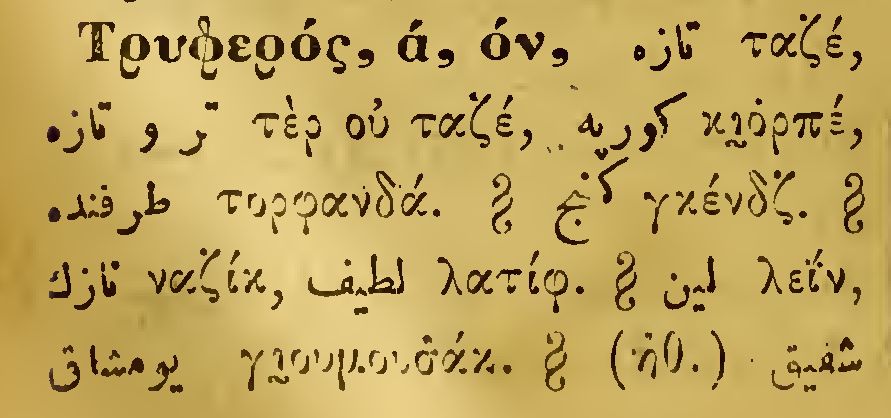 Τρυφερός, ά, όν, تازه ταζέ,
تر و تازه τὲρ οὐ ταζέ, كورپه κιόρπέ,
طرفنده τορφανδά. § كنج γκένδζ. §
نازك ναζίκ, لطيف λατίφ. § لين λεΐν,
يومشاق γιουμουσάκ. § (ἠθ.) شفيق